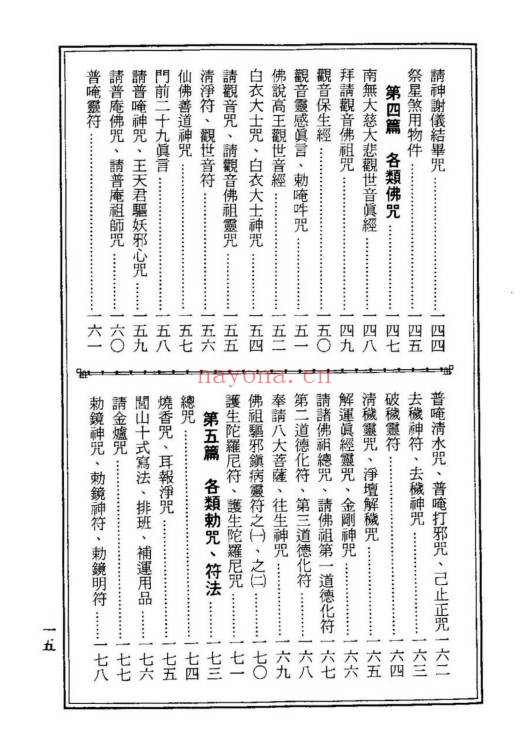 請神謝儀結畢咒……一四四
祭星煞用物件……一四五
第四篇 各類佛咒……一四七
南無大慈大悲觀世音眞經……一四八
拜請觀音佛祖咒……一四九
觀音保生經……一五〇
觀音靈感眞言、勅唵吽咒……一五一
佛說高王觀世音經……一五二
白衣大士咒、白衣大士神咒……一五四
請觀音咒、請觀音佛祖靈咒……一五五
清淨符、觀世音符……一五六
仙佛善道神咒……一五七
門前二十九眞言……一五八
請普唵神咒、王天君驅妖邪心咒……一五九
請普庵佛咒、請普庵祖師咒……一六〇
普唵靈符……一六一
普唵清水咒、普唵打邪咒、己止正咒……一六二
去穢神符、去穢神咒……一六三
破穢靈符……一六四
清穢靈咒、淨壇解穢咒……一六五
解運眞經靈咒、金剛神咒……一六六
請諸佛祖總咒、請佛祖第一道德化符……一六七
第二道德化符、第三道德化符……一六八
奉請八大菩薩、往生神咒……一六九
佛祖驅邪鎭病靈符之㈠、之㈡……一七〇
護生陀羅尼符、護生陀羅尼咒……一七一
第五篇 各類勅咒、符法……一七三
總咒……一七四
燒香咒、耳報淨咒……一七五
閭山十式寫法、排班、補運用品……一七六
請金爐咒……一七七
勅鏡神咒、勅鏡神符、勅鏡明符……一七八
一五
nayona.cn